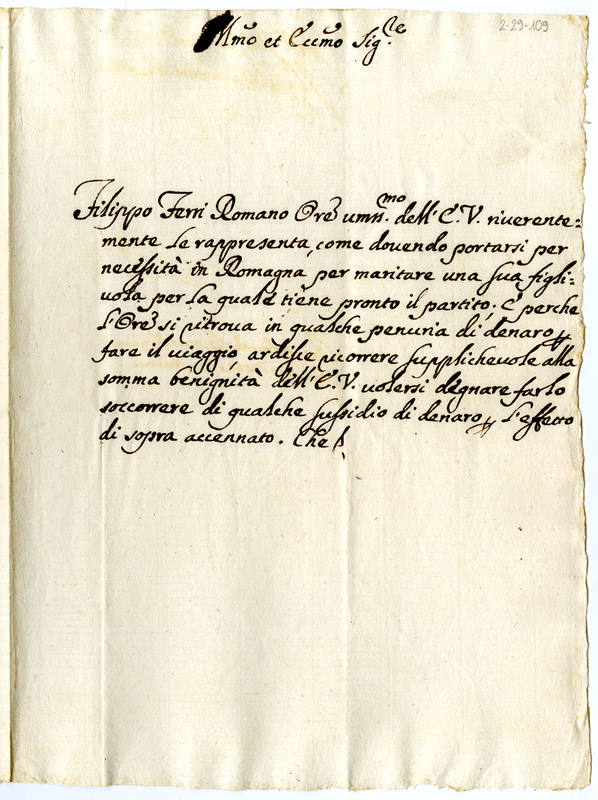 2-29-109
Illmo et Eccmo Sig.re
Filippo Ferri Romano Ore umilmo. dell'E.V. riverente=
mente le rappresenta, come dovendo portarsi per
necessità in Romagna, per maritare una sua figli=
uola per la quale tiene pronto il partito. E perche
l'Ore si ritrova in qualche penuria di denaro p
fare il viaggio, ardisce ricorrere supplichevole alla
somma benignità dell'E.V. volersi degnare farlo
soccorrere di qualche sussidio di denaro p l'effetto
di sopra accennato. Che